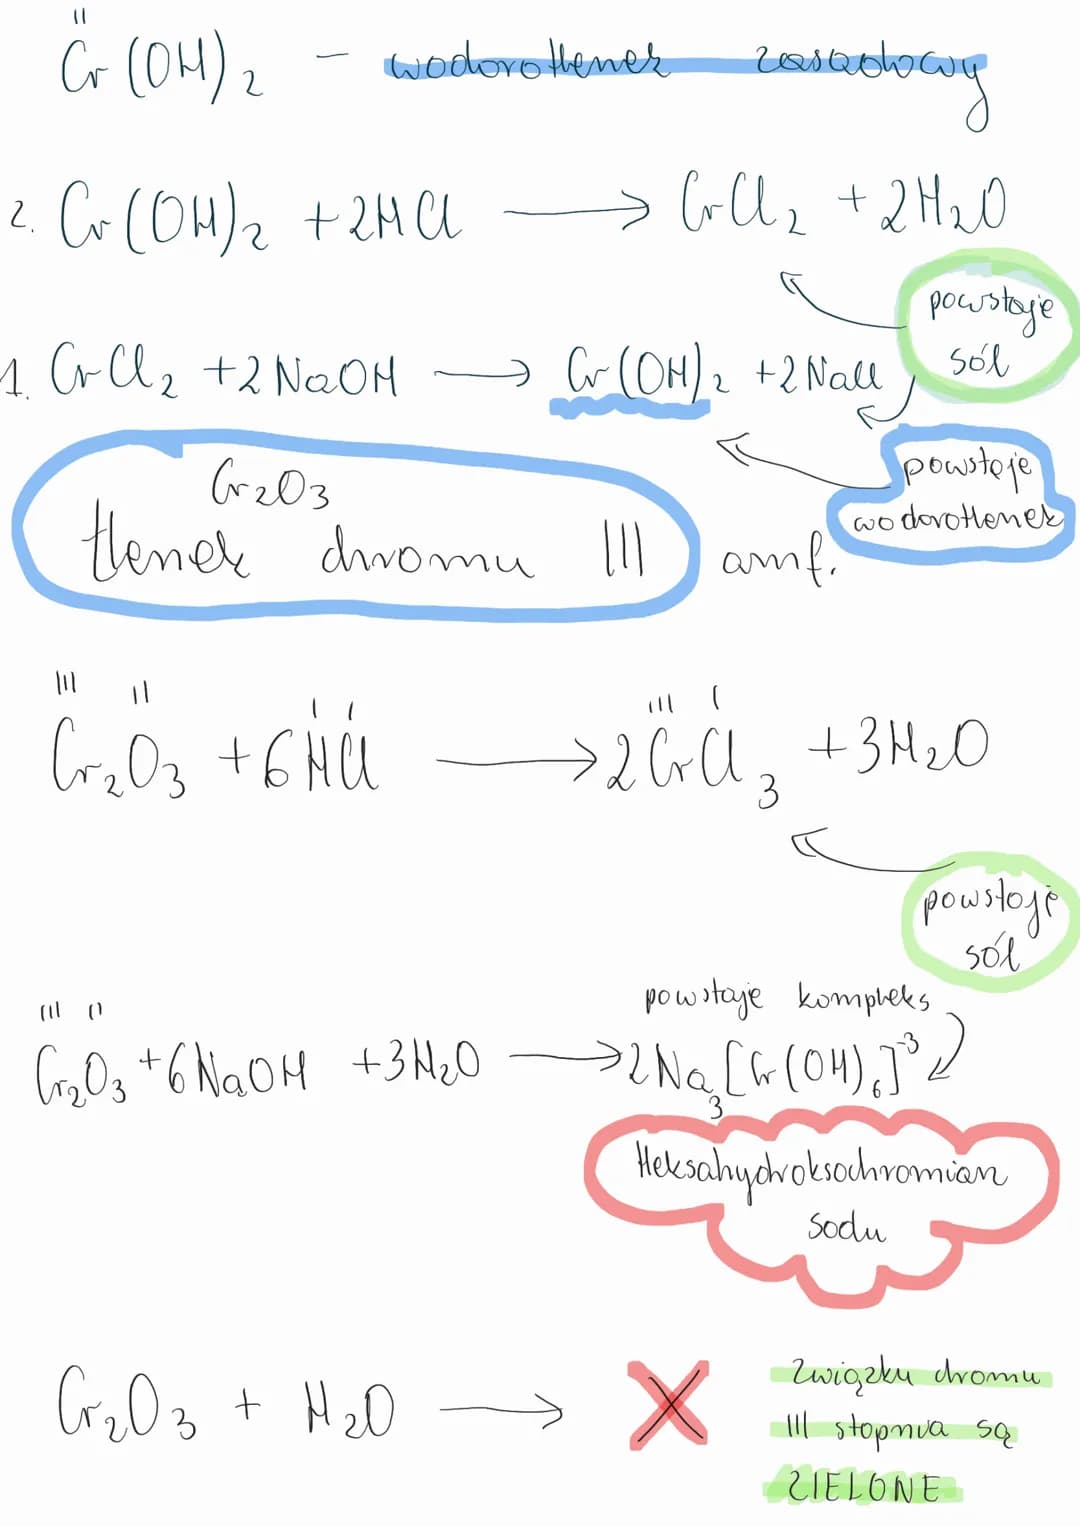 II
Cr(OH)₂ – wodorotlenek zasadowy
2. Cr(OH)₂ + 2HCl → CrCl₂ + 2H₂O
powstaje
sól
1. CrCl₂ + 2NaOH → Cr(OH)₂ + 2NaCl
powstaje
wodorotlenek
Cr₂O₃
tlenek chromu III amf.
III II I I III I
Cr₂O₃ + 6HCl → 2CrCl₃ + 3H₂O
powstaje
sól
powstaje kompleks
III II
Cr₂O₃ + 6NaOH + 3H₂O → 2Na₃[Cr(OH)₆]⁻³
Heksahydroksochromian
sodu
Cr₂O₃ + H₂O → X
Związku chromu
III stopnia są
ZIELONE